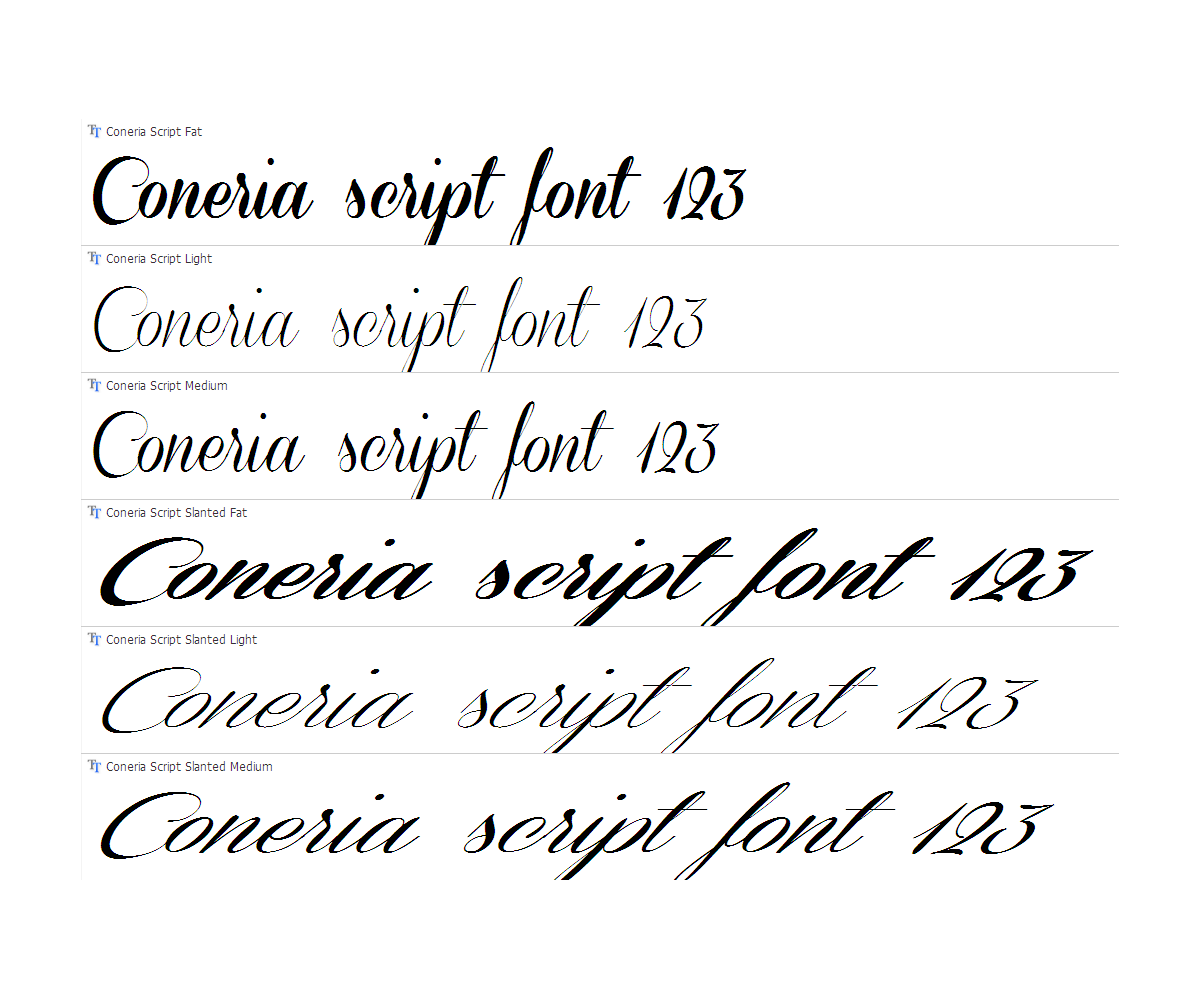 Coneria Script Fat
Coneria script font 123
Coneria Script Light
Coneria script font 123
Coneria Script Medium
Coneria script font 123
Coneria Script Slanted Fat
Coneria script font 123
Coneria Script Slanted Light
Coneria script font 123
Coneria Script Slanted Medium
Coneria script font 123